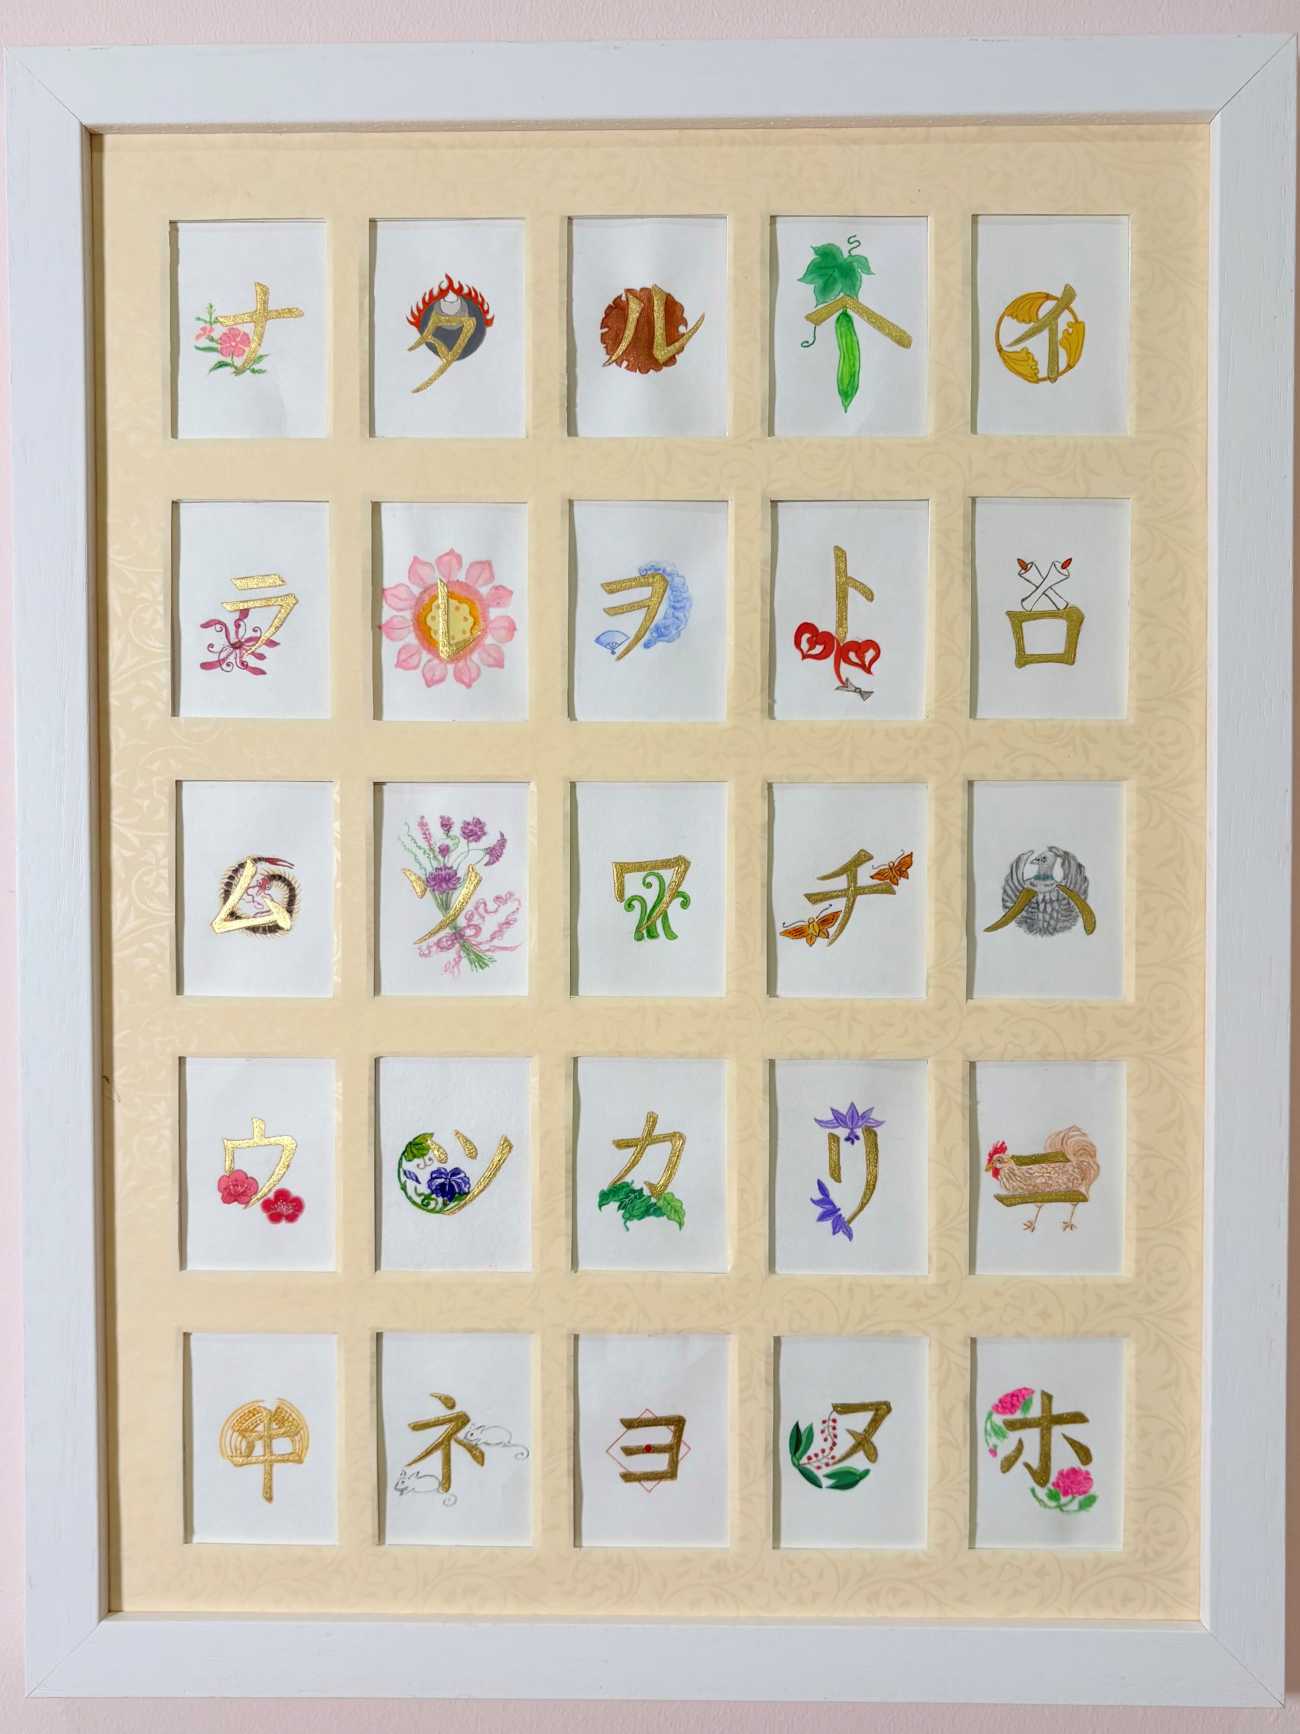 イロハニホ
ヘトチリヌ
ルヲワカヨ
タレソツネ
ナラムウヰ